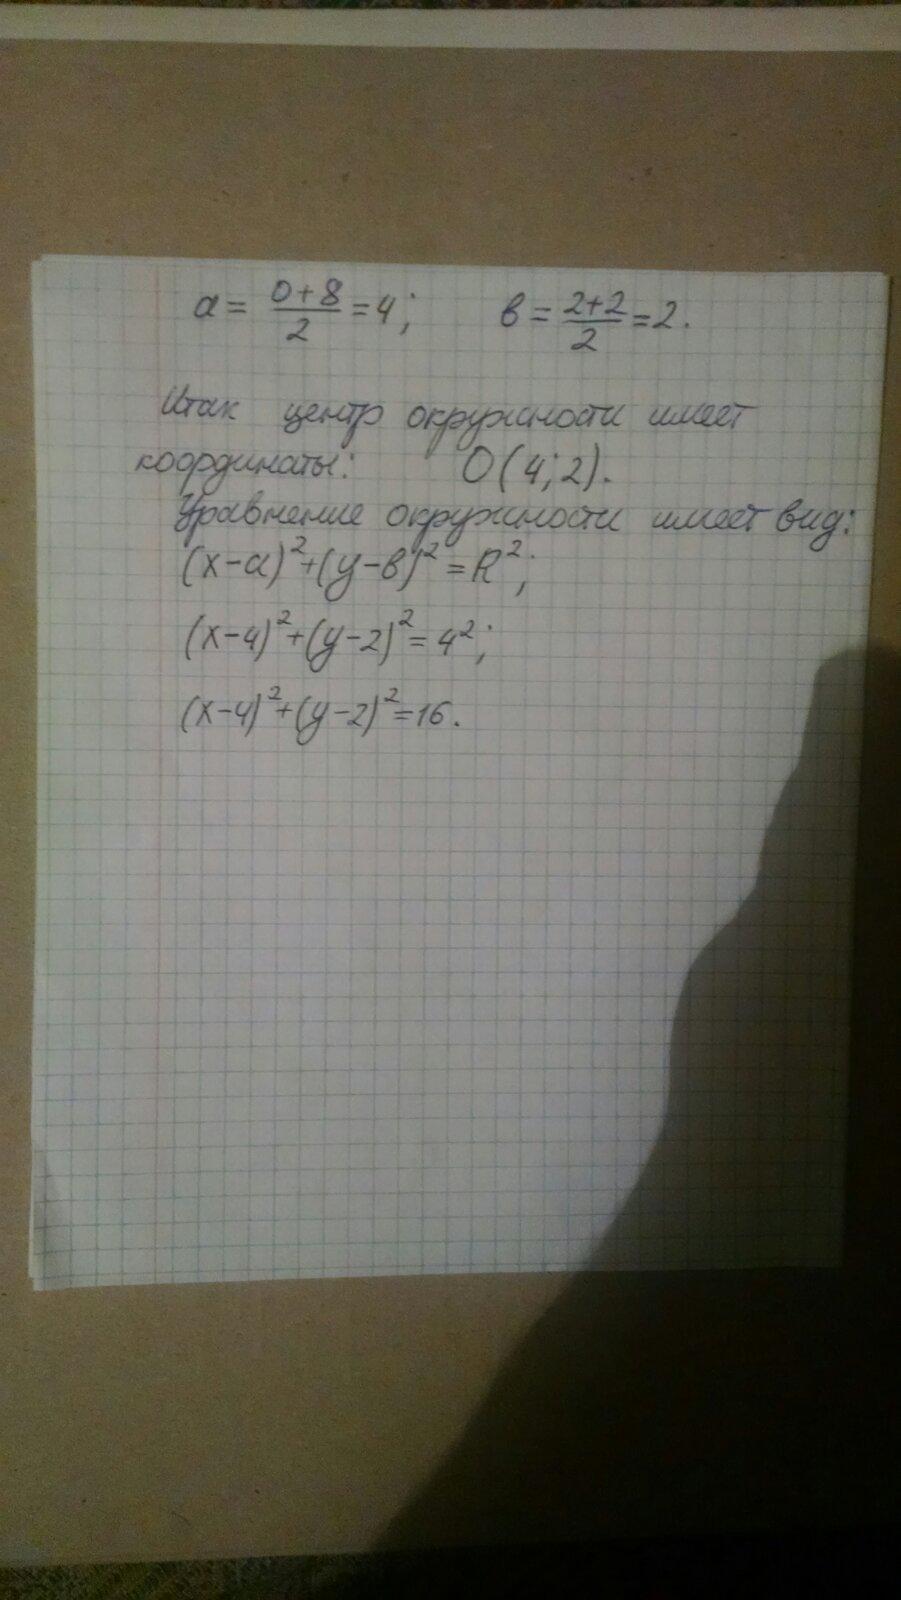 a = (0+8)/2 = 4; в = (2+2)/2 = 2.
Итак центр окружности имеет
координаты: O(4;2).
Уравнение окружности имеет вид:
(x-a)²+(y-в)²=R²;
(x-4)²+(y-2)²=4²;
(x-4)²+(y-2)²=16.